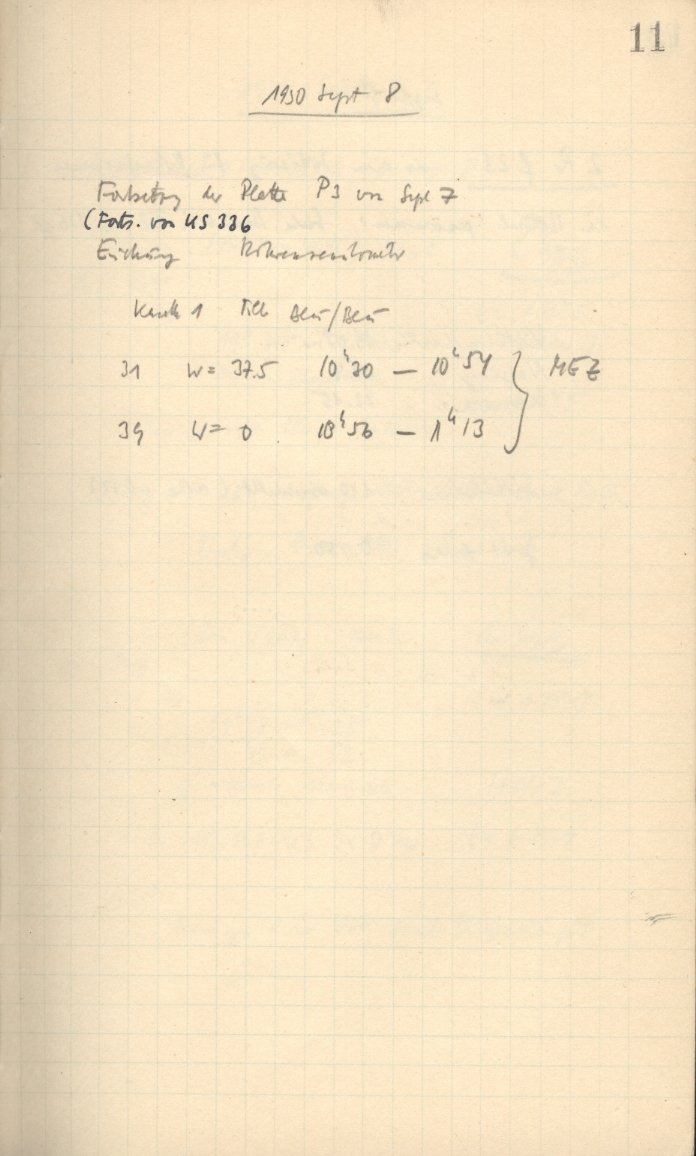 11
1930 Sept 8
Fortsetzung der Platte P3 von Sept 7
(Forts. von US 336
Eichung Röhrensensitometer
1 Blau/Blau
31 W = 37.5 10ʰ30 — 10ʰ54 } MEZ
34 W = 0 10ʰ56 — 1ʰ13